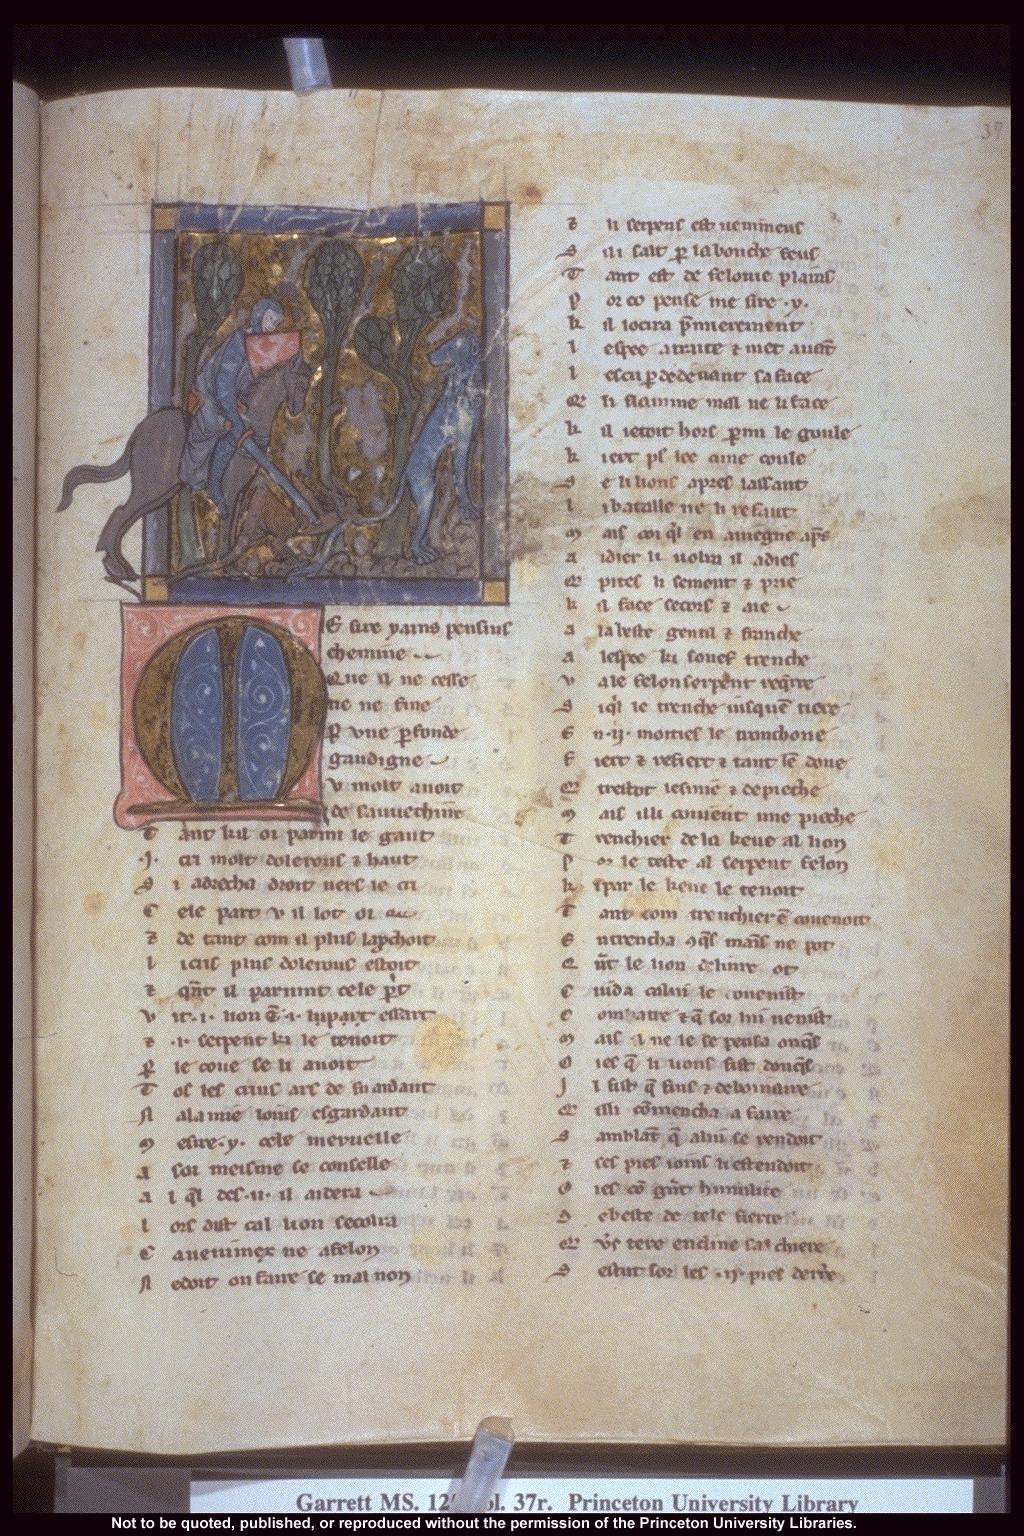 37
Me sire yains pensius
chemine
Que il ne cesse
ne ne fine
Par une parfonde
gaudigne
U molt avoit
de sauvechine
Tant kil oi parmi le gaut
.I. cri molt dolerous & haut
Si adrecha droit vers le cri
Cele part u il lot oi
& de tant com il plus
Li cris plus dolerous estoit
& quant il parvint cele part
Vit .i. lion en .i. essart
& .i. serpent ki le tenoit
Par le coue se li avoit
Tos les
Nala mie lonis esgardant
Mesire .y. cele mervelle
A soi meisme se conselle
Al quel des .ii. il aidera
Lors dist cal lion secorra
C a ne a felon
Ne doit on faire se mal non
& li serpens est venimeus
Si li salt par la bouche feus
Tant est de felonie plains
Por co pense me sire .y.
Kil locira primierement
Lespee a traite & met avant
Lescu par dedevant sa face
Que li flamme mal ne li face
Kil jetoit hors parmi le goule
Ki ert plus lee ame coule
Se li lions apres lassaut
Li bataille ne li refaut
Mais coi quil en aviegne apres
Aidier li volra il ades
Que pites li sement & prie
Kil face secors & aie
A la beste gentil & franche
A lespee ki souef trenche
Va le felon serpent requerre
Si quil le trenche jusquen tiere
En .ii. moities le tronchone
Fiert & refiert & tant len done
Que trestot lesmie & depieche
Mais illi convient une pieche
Trenchier de la keue al lion
Por le teste al serpent felon
Ki par le keue le tenoit
Tant com trenchier en covenoit
En trencha conques mains ne pot
Quant le lion delivre ot
Cuida calui le covenist
Combatre & que sor lui venist
Mais il ne le se pensa onques
Oies que li lions fist donques
Il fist que frans & debonaire
Que illi comencha a faire
Samblant que alui se rendoit
& ses pies joins li estendoit
Oies com grant humilite
De beste de tele fierte
Que vers tere encline sa chiere
Sestut sor les .ii. pies derriere
Garrett MS. 12 ol. 37r. Princeton University Library
Not to be quoted, published, or reproduced without the permission of the Princeton University Libraries.